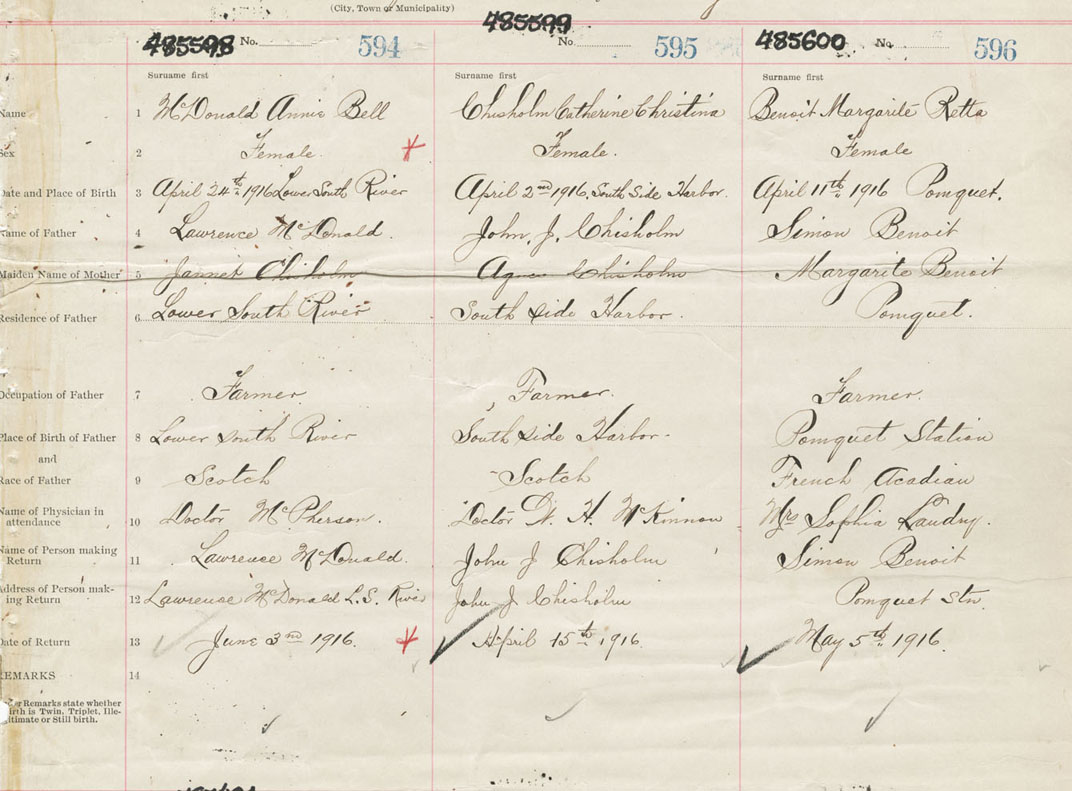 (City, Town or Municipality)
485598 No. 594 485599 No. 595 485600 No. 596
Surname first Surname first Surname first
Name 1 McDonald Annie Bell Chisholm Catherine Christina Benoit Margarite Retta
Sex 2 Female. Female. Female
Date and Place of Birth 3 April 24th 1916 Lower South River April 2nd 1916, South Side Harbor. April 11th 1916 Pomquet.
Name of Father 4 Lawrence McDonald. John. J. Chisholm Simon Benoit
Maiden Name of Mother 5 Jannet Chiholm Agnes Chisholm Margarite Benoit
Residence of Father 6 Lower South River South Side Harbor. Pomquet.
Occupation of Father 7 Farmer Farmer. Farmer.
Place of Birth of Father 8 Lower South River South Side Harbor. Pomquet Station
and
Race of Father 9 Scotch Scotch French Acadian
Name of Physician in
attendance 10 Doctor McPherson. Doctor W. H. McKinnon Mrs Sophia Landry.
Name of Person making
Return 11 Lawrence McDonald. John J Chisholm Simon Benoit
Address of Person mak-
ing Return 12 Lawrence McDonald L.S. River John J Chisholm Pomquet Stn.
Date of Return 13 June 3rd 1916. April 15th 1916 May 5th 1916.
REMARKS 14
Remarks state whether
birth is Twin, Triplet, Ille-
gitimate or Still birth.